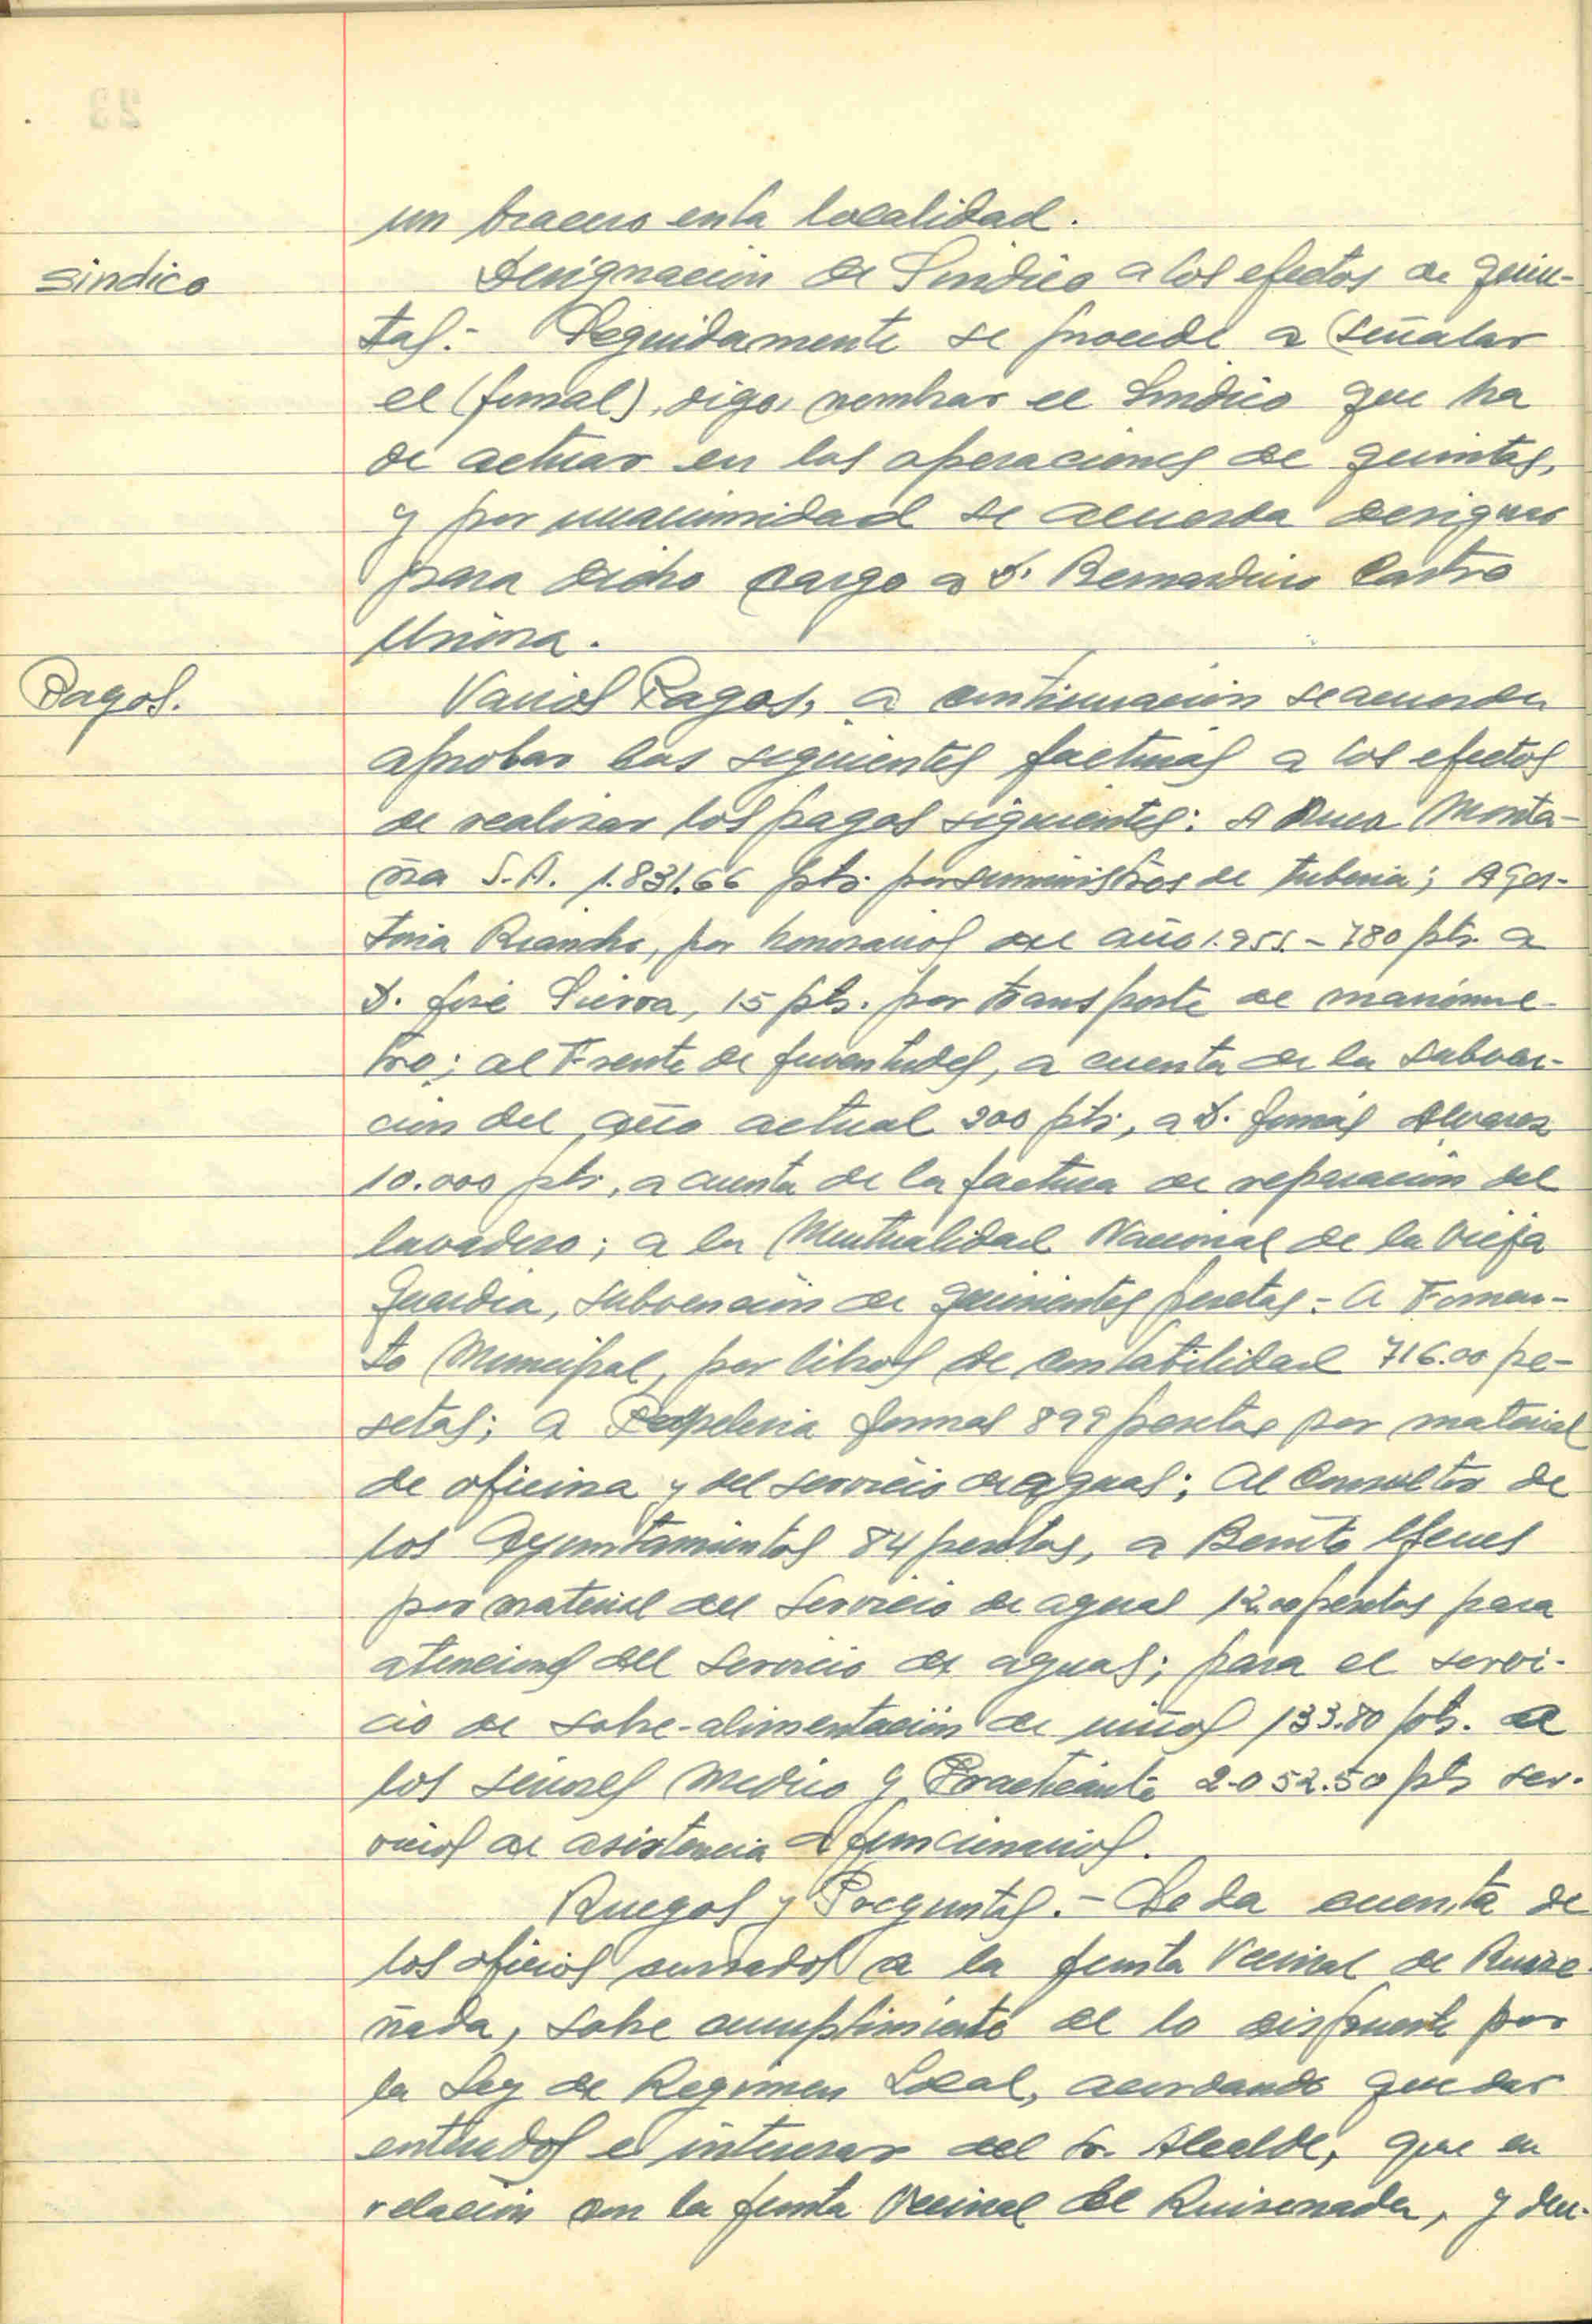 un bracero en la localidad.
Sindico
Designación de Sindico a los efectos de quin-
tas.- Seguidamente se procede a (señalar
el (jornal), digo, nombrar el Sindico que ha
de actuar en las operaciones de quintas,
y por unanimidad se acuerda designar
para dicho cargo a D. Bernardino Castro
Pagos.
Varios Pagos, a continuación se acuerda
aprobar las siguientes facturas a los efectos
de realizar los pagos siguientes: A Monta-
ña S.A. 1.831.66 pts. por suministros de tuberia; A Ges-
toria Riancho, por honorarios del año 1.955.- 780 pts. a
D. José Sierra, 15 pts. por transporte de manóme-
tro; al Frente de Juventudes, a cuenta de la subven-
ción del año actual 300 pts, a D. Alvarez
10.000 pts, a cuenta de la factura de reparación del
lavadero; a la Mutualidad Nacional de la Vieja
Guardia, subvención de quinientas pesetas.- A Fomen-
to Municipal, por libros de contabilidad 716.00 pe-
setas; a Papeleria 899 pesetas por material
de oficina y del servicio de aguas; Al Consultor de
los Ayuntamientos 84 pesetas, a Benito
por material del Servicio de aguas 12.00 pesetas para
atenciones del Servicio de aguas; para el servi-
cio de sobre-alimentación de niños 133.80 pts. a
los señores Medico y Practicante 2.052.50 pts ser-
vicios de asistencia a funcionarios.
Ruegos y Preguntas.- Se da cuenta de
los oficios cursados a la Junta Vecinal de Ruise-
ñada, sobre cumplimiento de lo dispuesto por
la Ley de Regimen Local, acordando quedar
enterados e interesar del Sr. Alcalde, que en
relación con la Junta Vecinal de Ruiseñada, y den-